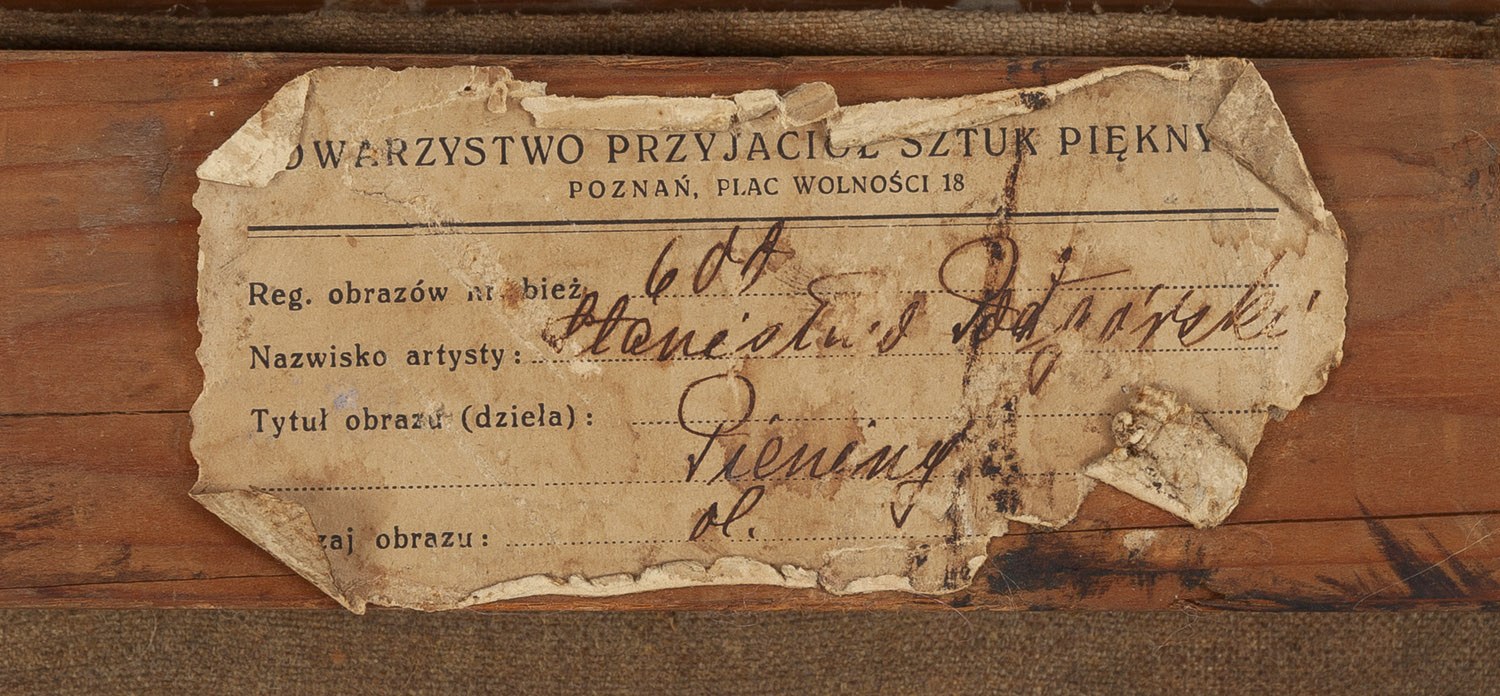 OWARZYSTWO PRZYJACIÓŁ SZTUK PIĘKNY
POZNAŃ, PLAC WOLNOŚCI 18
Reg. obrazów nr. bież.
Nazwisko artysty: Stanisław Podgórski
Tytuł obrazu (dzieła):
Pieniny
zaj obrazu: ol.